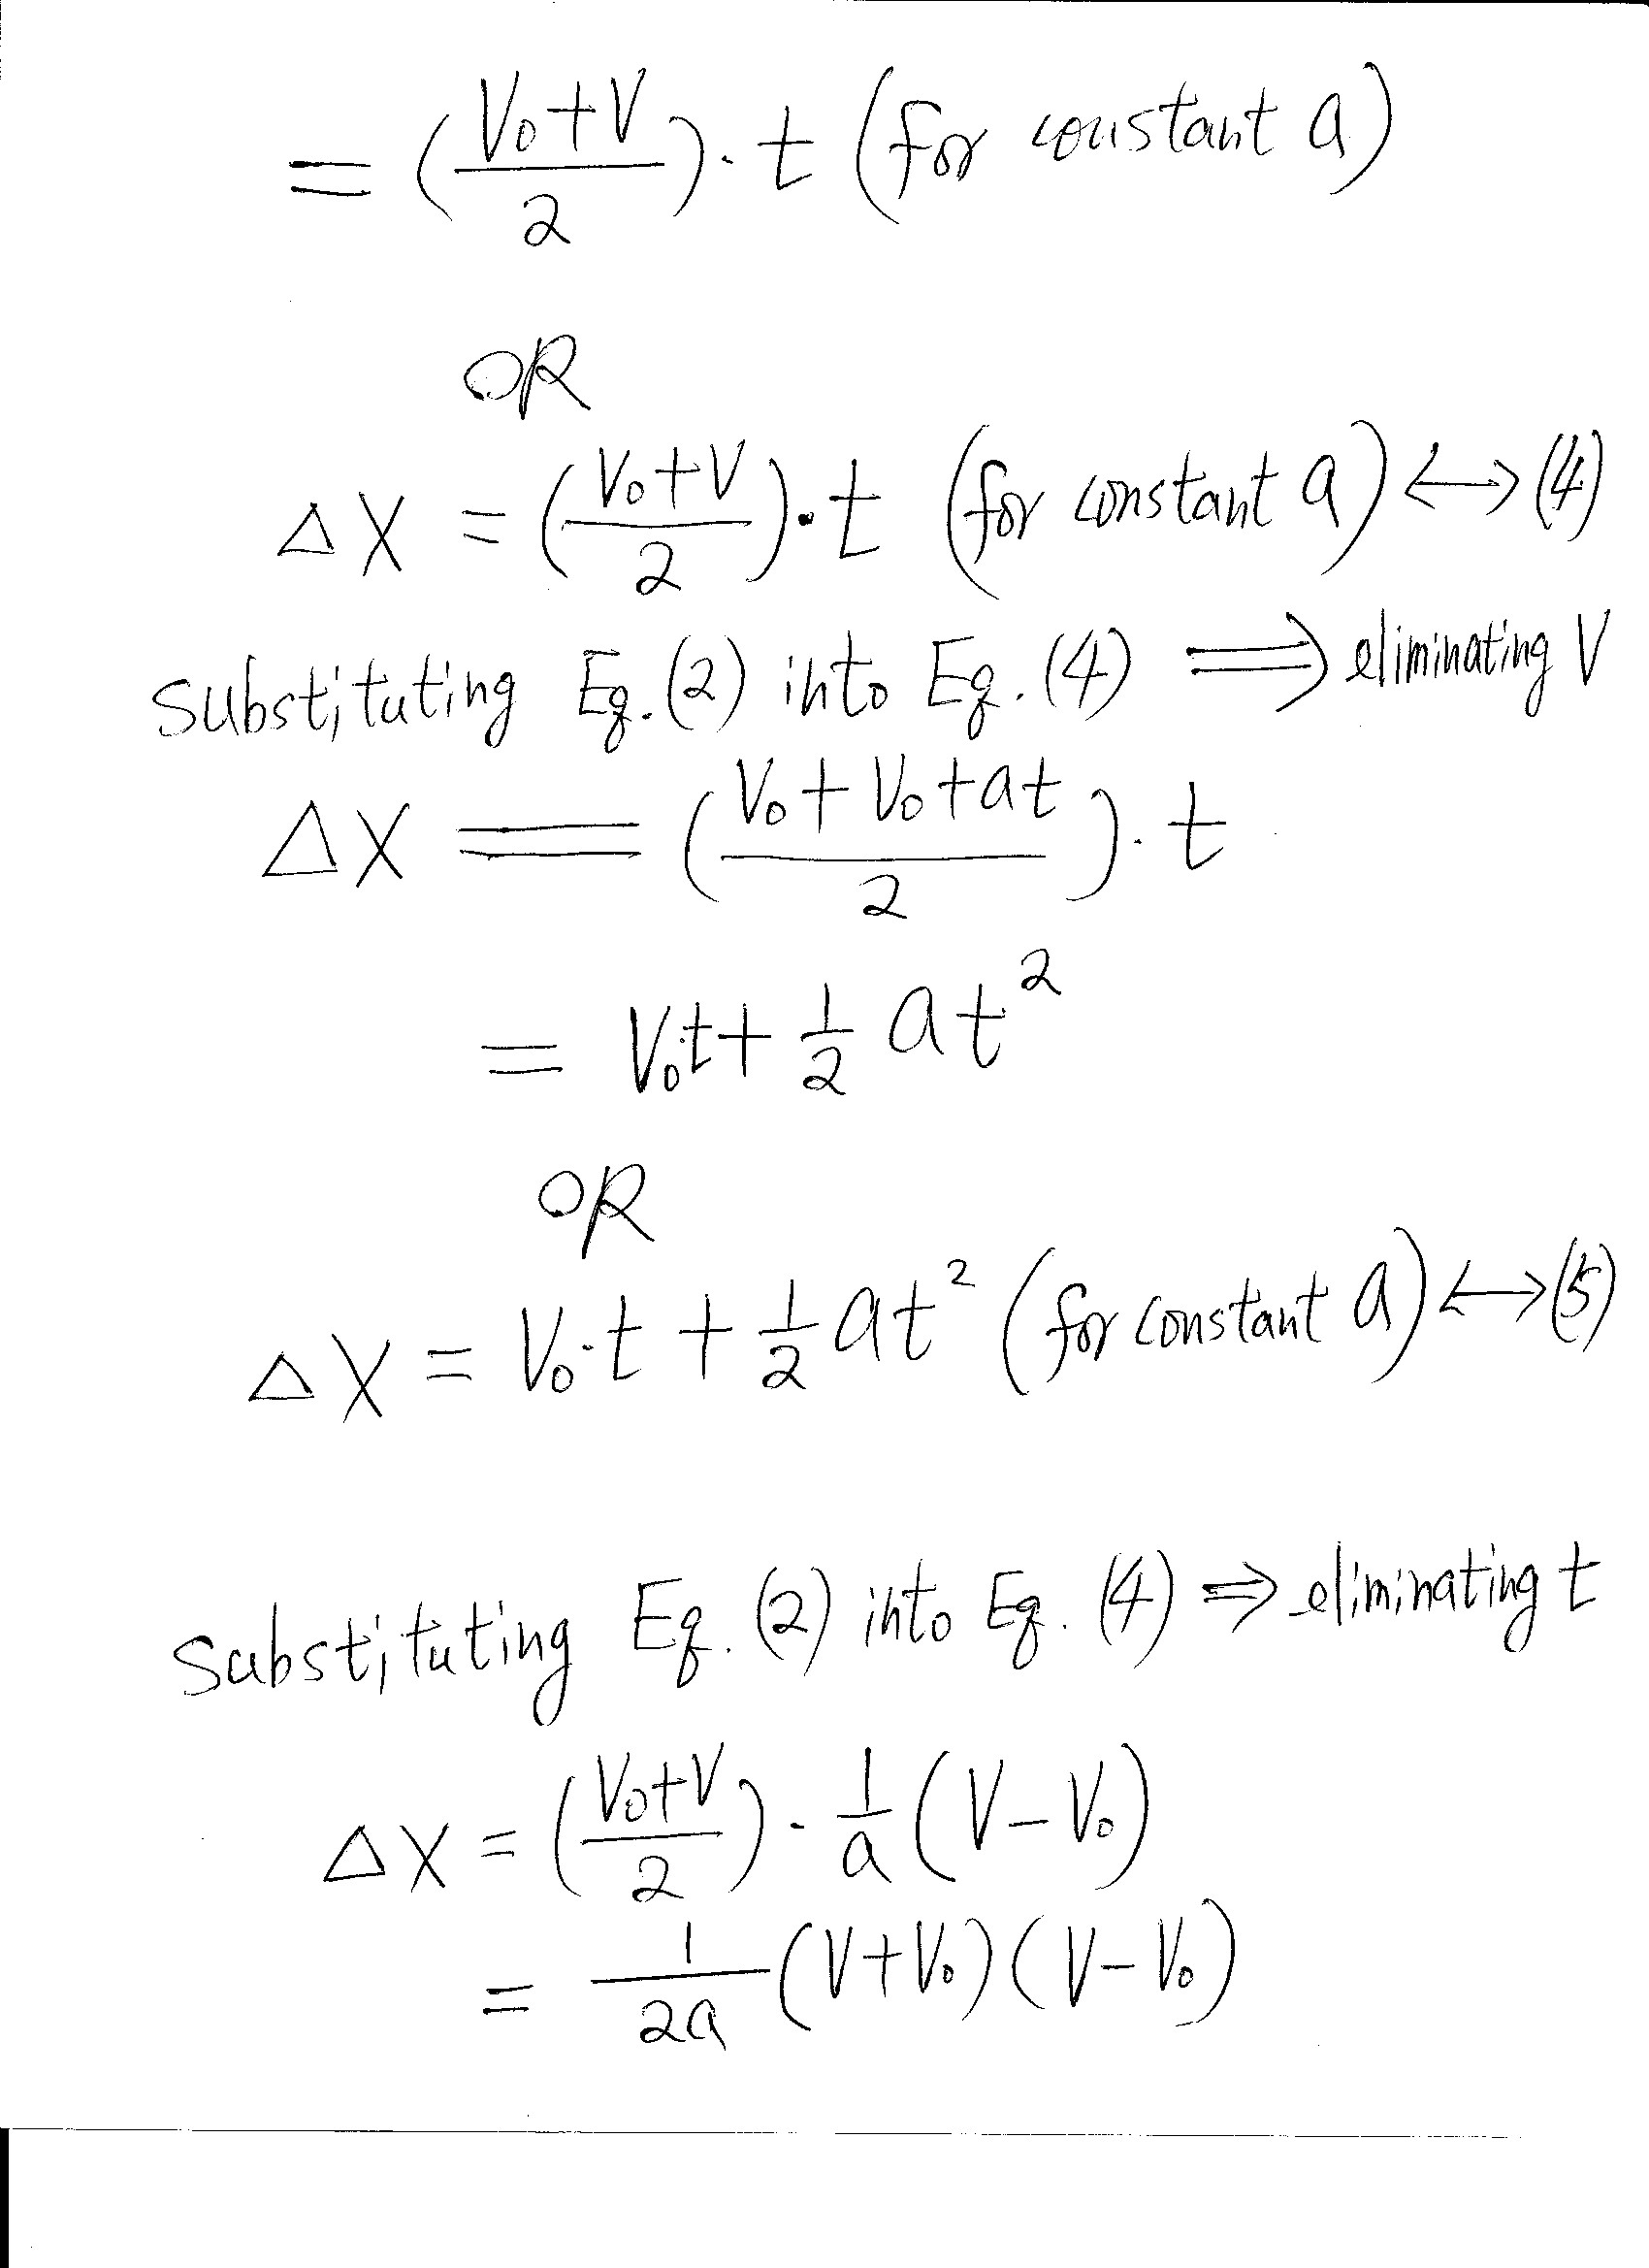 = (V₀+V / 2)·t (for constant a)
OR
ΔX = (V₀+V / 2)·t (for constant a) ⟷ (4)
Substituting Eq.(2) into Eq.(4) ⟹ eliminating V
ΔX = (V₀+V₀+at / 2)·t
= V₀t + 1/2 at²
OR
ΔX = V₀·t + 1/2 at² (for constant a) ⟷ (5)
Substituting Eq.(2) into Eq.(4) ⟹ eliminating t
ΔX = (V₀+V / 2)·1/a (V-V₀)
= 1/2a (V+V₀)(V-V₀)